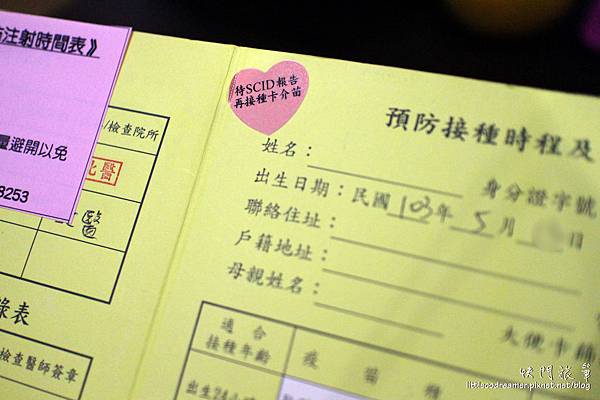 注射時間表》
量避開以免
3253
/檢查院所
北醫
錄表
檢查醫師簽章
待SCID報告
再接種卡介苗
預防接種時程及
姓名：
出生日期：民國103年5月 日
身分證字號
聯絡住址：
戶籍地址：
母親姓名：
大便卡
適合
接種年齡
疫苗種
出生24小
快門旅筆
littlecodreamer.pixnet.net/blog